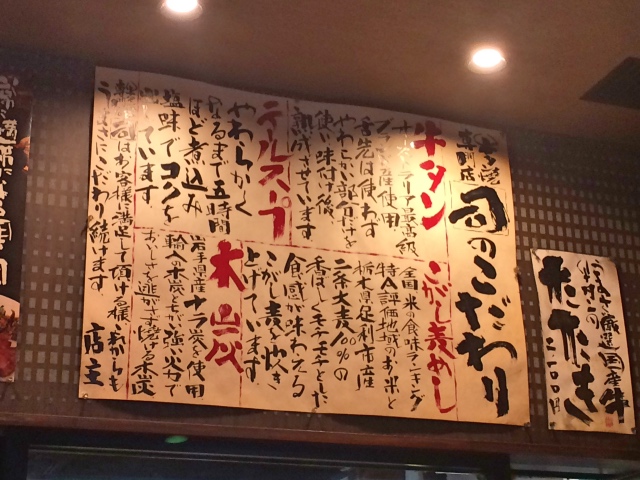 牛たん焼
専門店
司のこだわり
牛タン
オーストラリア最高級
ブランド産使用
舌先は使わず
やわらかい部分だけを
使い味付け後、
熟成させています
テールスープ
やわらかく
なるまで五時間
ほど煮込み
塩味でコクを
出しています
こがし麦めし
全国米の食味ランキング
特A評価地域のお米と
栃木県足利市産
二条大麦100%の
香ばしくモチモチとした
食感が味わえる
こがし麦を炊き
上げています
木炭
岩手県産ナラ炭を使用
輸入の木炭とちがい強い火力で
おいしさを逃がさず焼ける木炭
司はお客様に満足して頂ける様、これからも
うまさにこだわり続けます
店主
厳選国産牛
たたき